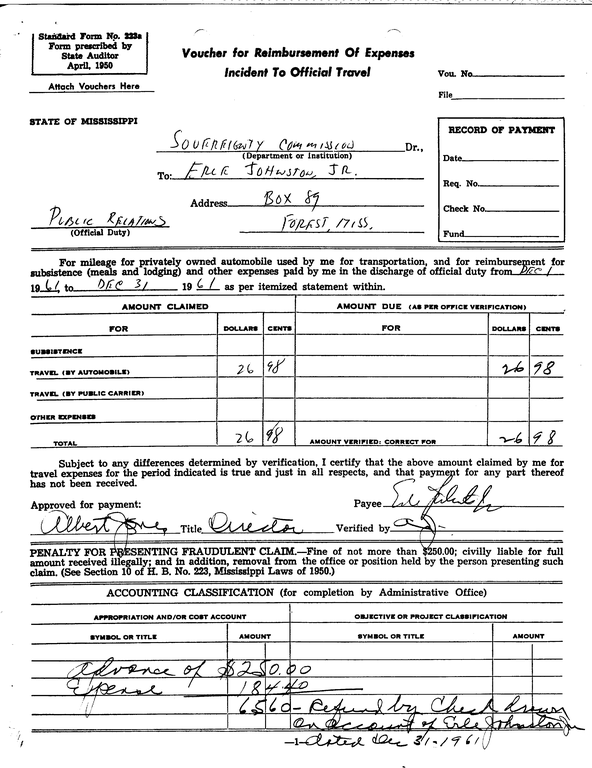 Standard Form No. 223a
Form prescribed by
State Auditor
April, 1950
Attach Vouchers Here
Voucher for Reimbursement Of Expenses
Incident To Official Travel
Vou. No.
File
STATE OF MISSISSIPPI
SOVEREIGNTY COMMISSION Dr.,
(Department or Institution)
To: ERLE JOHNSTON, JR.
Address BOX 89
FOREST, MISS.
PUBLIC RELATIONS
(Official Duty)
RECORD OF PAYMENT
Date
Req. No.
Check No.
Fund
For mileage for privately owned automobile used by me for transportation, and for reimbursement for
subsistence (meals and lodging) and other expenses paid by me in the discharge of official duty from DEC 1
1961, to DEC 31 1961 as per itemized statement within.
AMOUNT CLAIMED AMOUNT DUE (AS PER OFFICE VERIFICATION)
FOR DOLLARS CENTS FOR DOLLARS CENTS
SUBSISTENCE
TRAVEL (BY AUTOMOBILE) 26 98 26 98
TRAVEL (BY PUBLIC CARRIER)
OTHER EXPENSES
TOTAL 26 98 AMOUNT VERIFIED: CORRECT FOR 26 98
Subject to any differences determined by verification, I certify that the above amount claimed by me for
travel expenses for the period indicated is true and just in all respects, and that payment for any part thereof
has not been received.
Approved for payment: Payee Erle Johnston Jr
Albert Jones Title Director Verified by
PENALTY FOR PRESENTING FRAUDULENT CLAIM.—Fine of not more than $250.00; civilly liable for full
amount received illegally; and in addition, removal from the office or position held by the person presenting such
claim. (See Section 10 of H. B. No. 223, Mississippi Laws of 1950.)
ACCOUNTING CLASSIFICATION (for completion by Administrative Office)
APPROPRIATION AND/OR COST ACCOUNT OBJECTIVE OR PROJECT CLASSIFICATION
SYMBOL OR TITLE AMOUNT SYMBOL OR TITLE AMOUNT
Advance of $250.00
Expense 184.40
65.60 - Refund by Check drawn
on account of Erle Johnston Jr
-1- dated Dec 31-1961